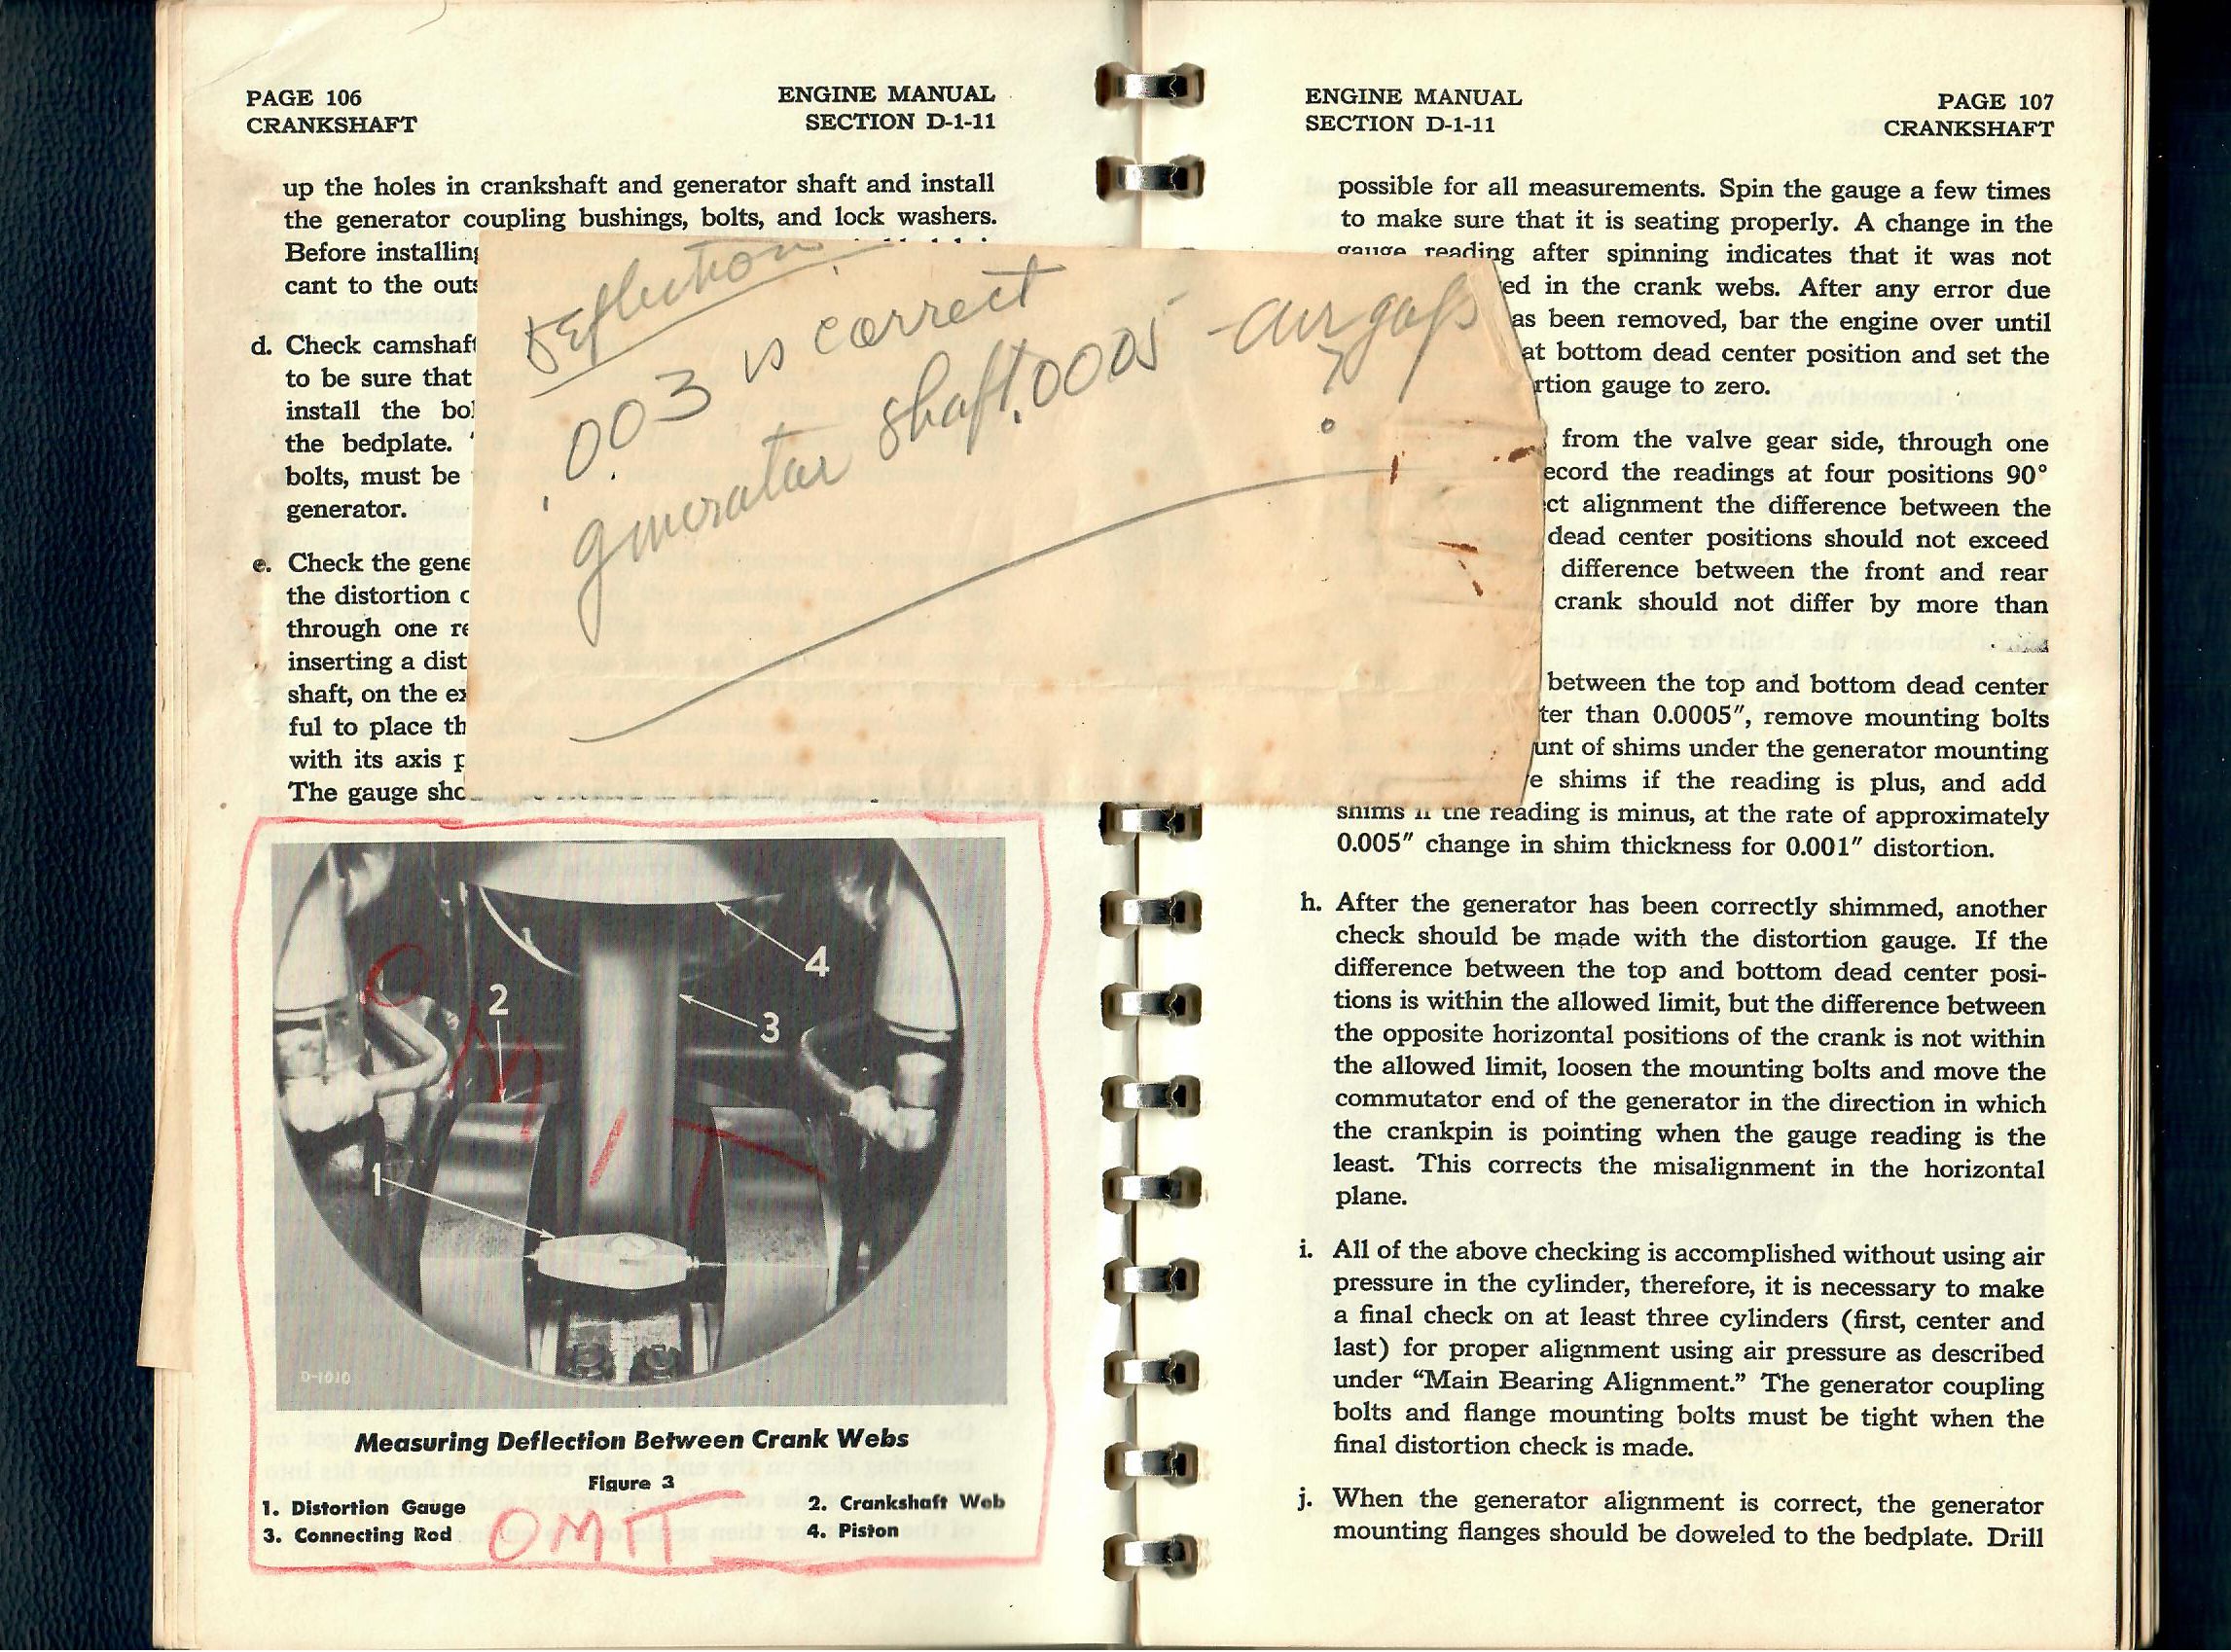 PAGE 106
CRANKSHAFT
ENGINE MANUAL
SECTION D-1-11
up the holes in crankshaft and generator shaft and install
the generator coupling bushings, bolts, and lock washers.
Before installing
cant to the outs
d. Check camshaft
to be sure that
install the bol
the bedplate.
bolts, must be
generator.
e. Check the gene
the distortion
through one re
inserting a dist
shaft, on the ex
ful to place th
with its axis p
The gauge sho
Deflection
.003 is correct
generator shaft .0005 - air gaps
?
4
2
3
1
OMIT
D-1010
Measuring Deflection Between Crank Webs
Figure 3
1. Distortion Gauge
2. Crankshaft Web
3. Connecting Rod
4. Piston
OMIT
ENGINE MANUAL
SECTION D-1-11
PAGE 107
CRANKSHAFT
possible for all measurements. Spin the gauge a few times
to make sure that it is seating properly. A change in the
gauge reading after spinning indicates that it was not
ed in the crank webs. After any error due
as been removed, bar the engine over until
at bottom dead center position and set the
rtion gauge to zero.
from the valve gear side, through one
ecord the readings at four positions 90°
ct alignment the difference between the
dead center positions should not exceed
difference between the front and rear
crank should not differ by more than
between the top and bottom dead center
ter than 0.0005″, remove mounting bolts
unt of shims under the generator mounting
e shims if the reading is plus, and add
shims if the reading is minus, at the rate of approximately
0.005″ change in shim thickness for 0.001″ distortion.
h. After the generator has been correctly shimmed, another
check should be made with the distortion gauge. If the
difference between the top and bottom dead center posi-
tions is within the allowed limit, but the difference between
the opposite horizontal positions of the crank is not within
the allowed limit, loosen the mounting bolts and move the
commutator end of the generator in the direction in which
the crankpin is pointing when the gauge reading is the
least. This corrects the misalignment in the horizontal
plane.
i. All of the above checking is accomplished without using air
pressure in the cylinder, therefore, it is necessary to make
a final check on at least three cylinders (first, center and
last) for proper alignment using air pressure as described
under “Main Bearing Alignment.” The generator coupling
bolts and flange mounting bolts must be tight when the
final distortion check is made.
j. When the generator alignment is correct, the generator
mounting flanges should be doweled to the bedplate. Drill